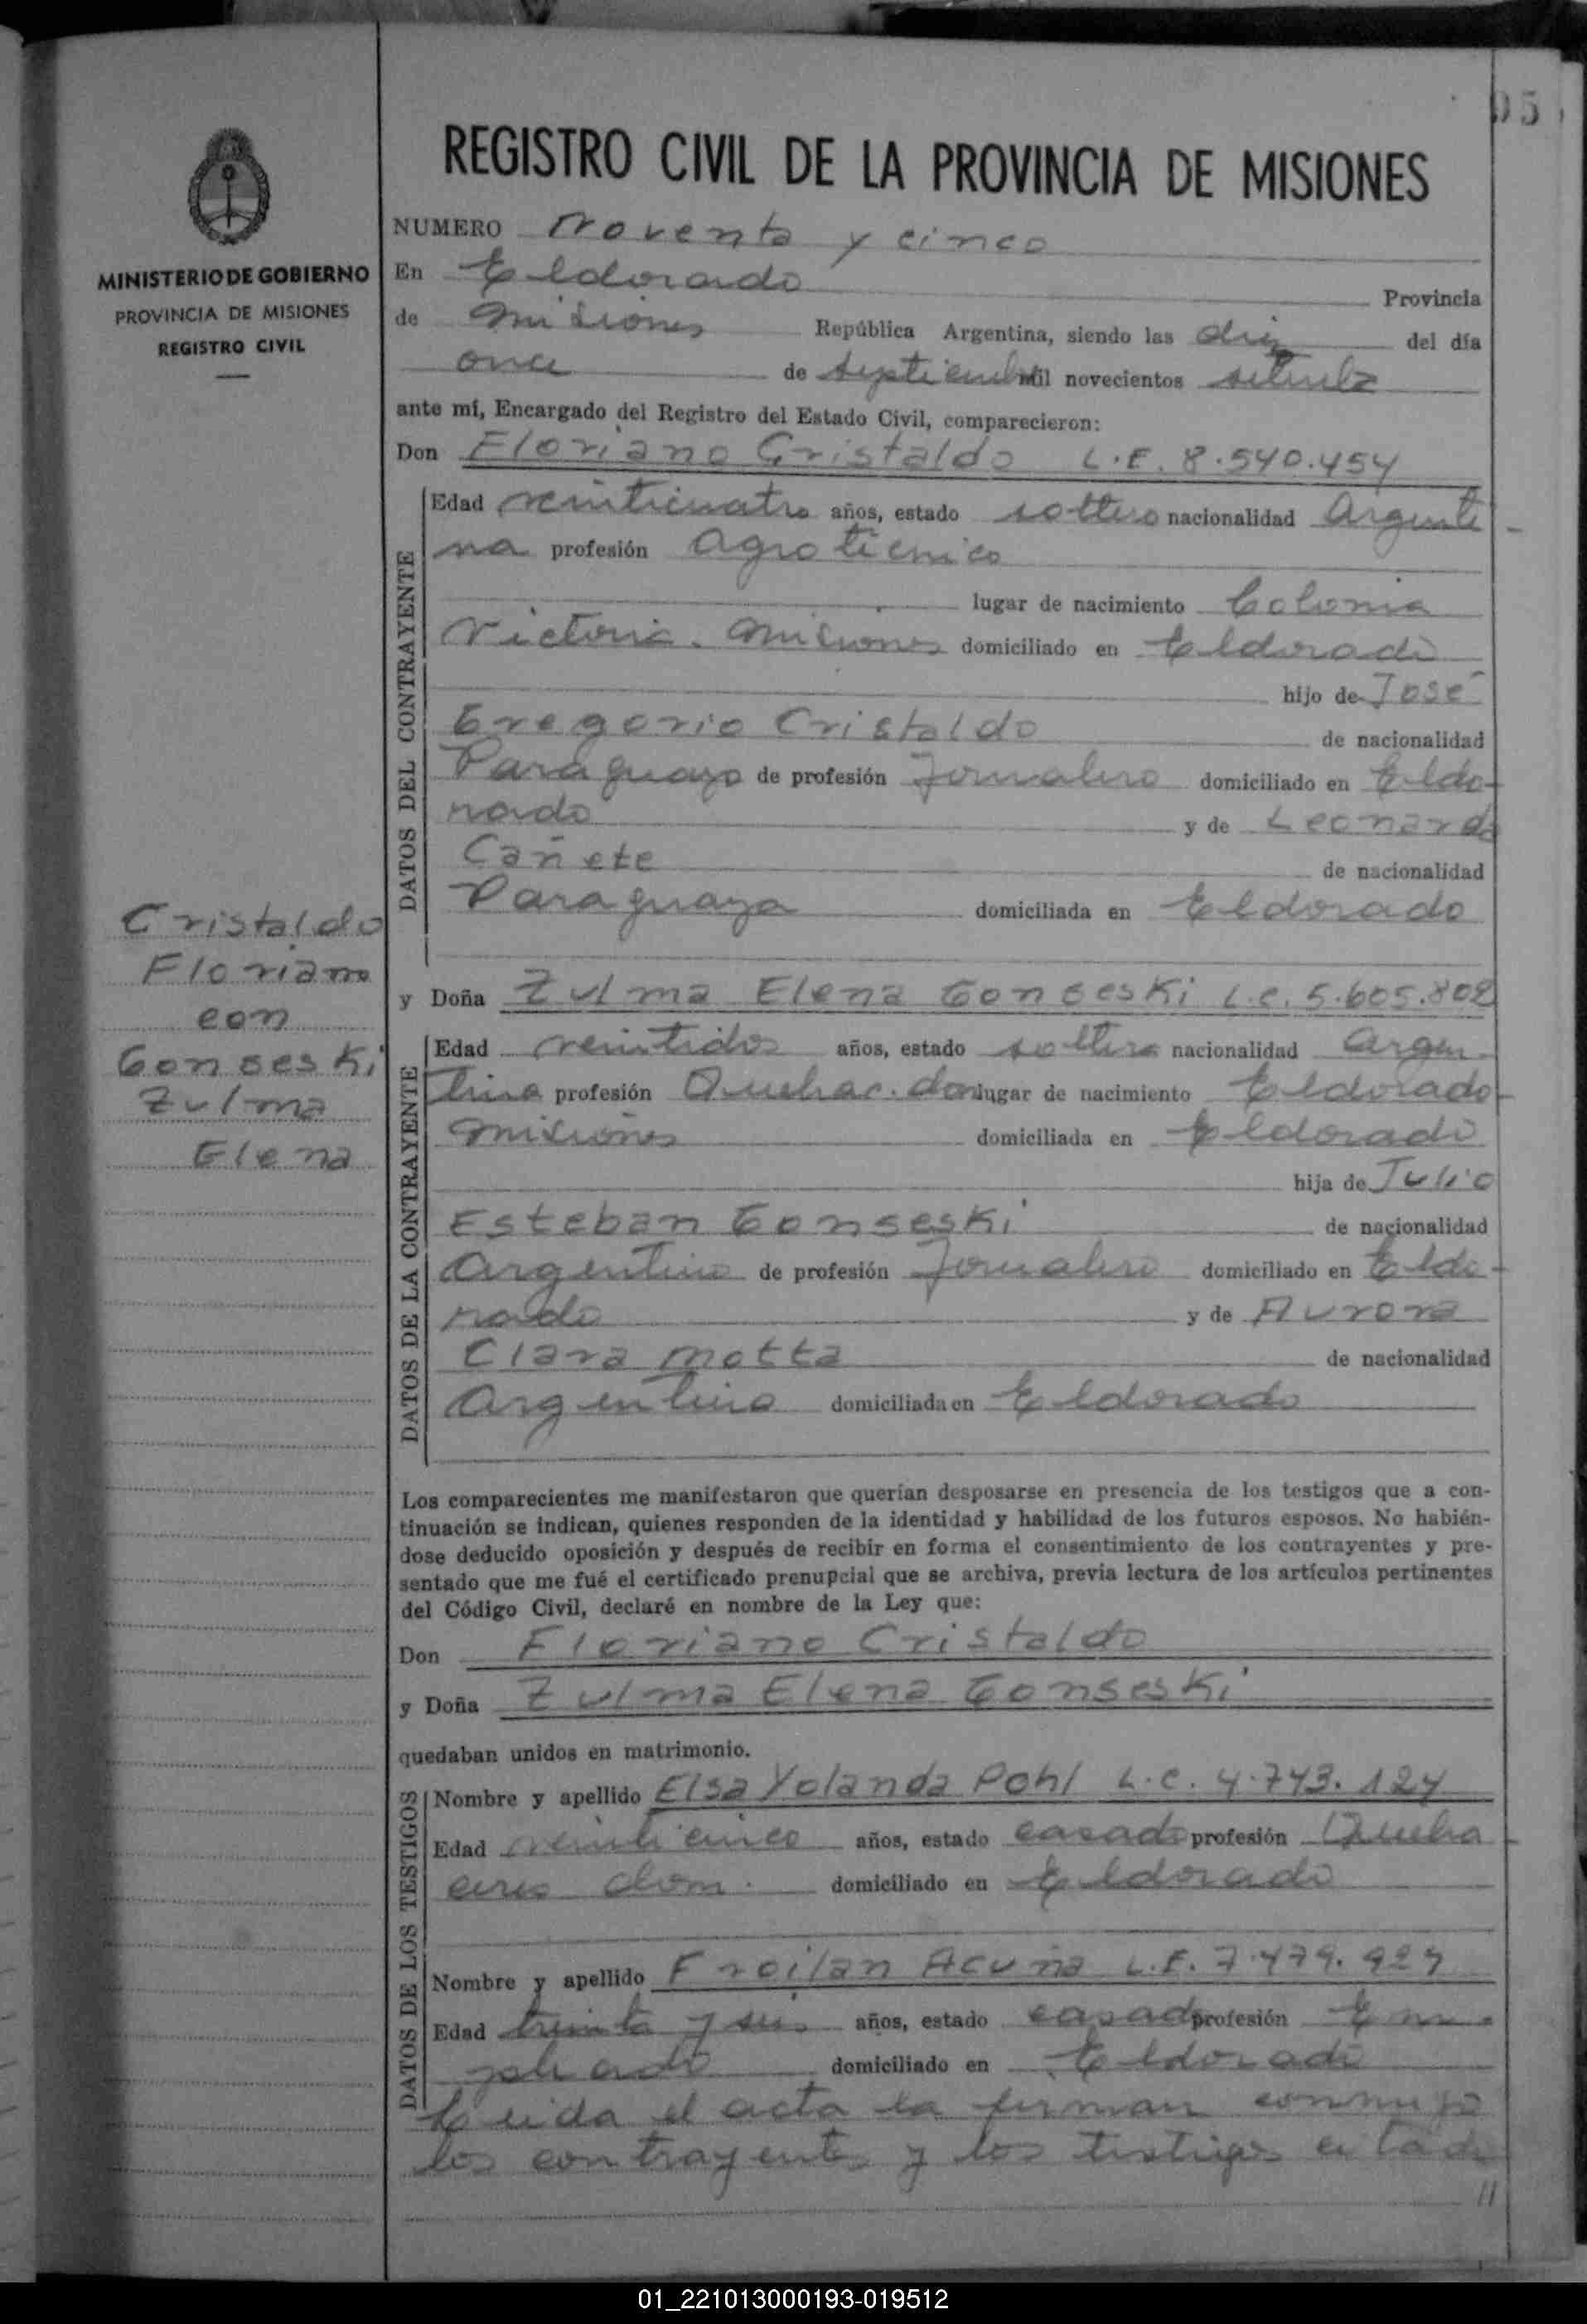 95
REGISTRO CIVIL DE LA PROVINCIA DE MISIONES
MINISTERIO DE GOBIERNO
PROVINCIA DE MISIONES
REGISTRO CIVIL
NUMERO Noventa y cinco
En Eldorado Provincia
de Misiones República Argentina, siendo las diez del día
once de septiembre Mil novecientos setenta
ante mí, Encargado del Registro del Estado Civil, comparecieron:
Don Floriano Cristaldo L.E. 8.540.454
DATOS DEL CONTRAYENTE
Edad veinticuatro años, estado soltero nacionalidad Argenti-
na profesión Agrotécnico
lugar de nacimiento Colonia
Victoria. Misiones domiciliado en Eldorado
hijo de José
Gregorio Cristaldo de nacionalidad
Paraguayo de profesión Jornalero domiciliado en Eldo-
rado y de Leonarda
Cañete de nacionalidad
Paraguaya domiciliada en Eldorado
Cristaldo
Floriano
con
Gonseski
Zulma
Elena
y Doña Zulma Elena Gonseski L.C. 5.605.802
DATOS DE LA CONTRAYENTE
Edad veintidos años, estado soltera nacionalidad Argen-
tina profesión Quehac. dom lugar de nacimiento Eldorado-
Misiones domiciliada en Eldorado
hija de Julio
Esteban Gonseski de nacionalidad
Argentino de profesión Jornalero domiciliado en Eldo-
rado y de Aurora
Clara Motta de nacionalidad
Argentina domiciliada en Eldorado
Los comparecientes me manifestaron que querían desposarse en presencia de los testigos que a con-
tinuación se indican, quienes responden de la identidad y habilidad de los futuros esposos. No habién-
dose deducido oposición y después de recibir en forma el consentimiento de los contrayentes y pre-
sentado que me fué el certificado prenupcial que se archiva, previa lectura de los artículos pertinentes
del Código Civil, declaré en nombre de la Ley que:
Don Floriano Cristaldo
y Doña Zulma Elena Gonseski
quedaban unidos en matrimonio.
DATOS DE LOS TESTIGOS
Nombre y apellido Elsa Yolanda Pohl L.C. 4.743.124
Edad veinticinco años, estado casada profesión Queha-
ceres dom. domiciliado en Eldorado
Nombre y apellido Froilan Acuña L.E. 7.479.929
Edad treinta y seis años, estado casado profesión Em-
pleado domiciliado en Eldorado
Leida el acta la firman conmigo
los contrayentes y los testigos citados
//
01_221013000193-019512